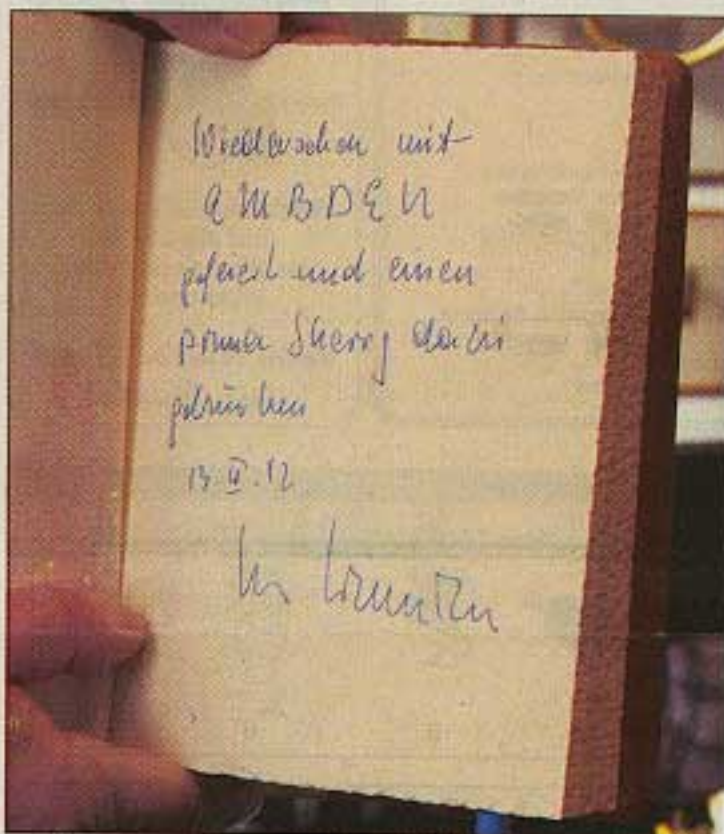 Wiedersehen mit
AMBDEN
gefeiert und einen
prima Sherry dabei
getrunken